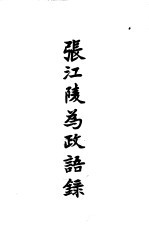 張江陵為政語錄